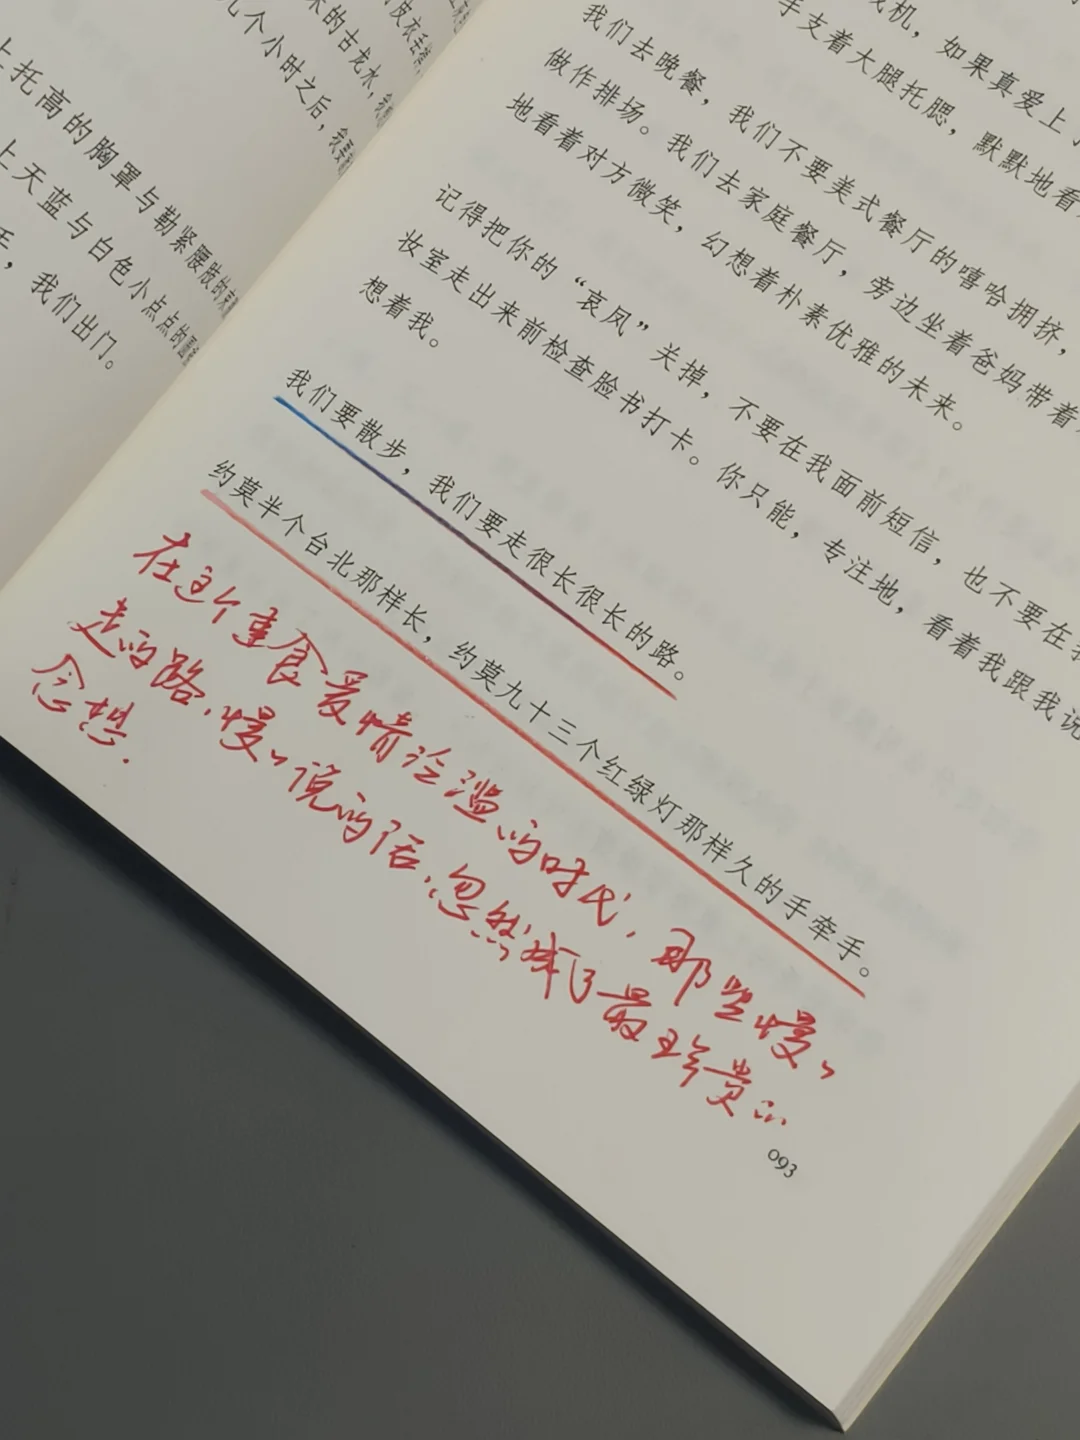 皮衣手
来的古龙水，我
几个小时之后，我要
上托高的胸罩与勒紧腰肢的束
上天蓝与白色小点点的
手，我们出门。
机，如果真爱上了
手支着大腿托腮，默默地看
我们去晚餐，我们不要美式餐厅的嘻哈拥挤，
做作排场。我们去家庭餐厅，旁边坐着爸妈带着
地看着对方微笑，幻想着朴素优雅的未来。
记得把你的“哀凤”关掉，不要在我面前短信，也不要在我
妆室走出来前检查脸书打卡。你只能，专注地，看着我跟我说
想着我。
我们要散步，我们要走很长很长的路。
约莫半个台北那样长，约莫九十三个红绿灯那样久的手牵手。
在这个速食爱情泛滥的时代，那些慢慢
走的路，慢慢说的话，忽然成了最珍贵的
念想.
093